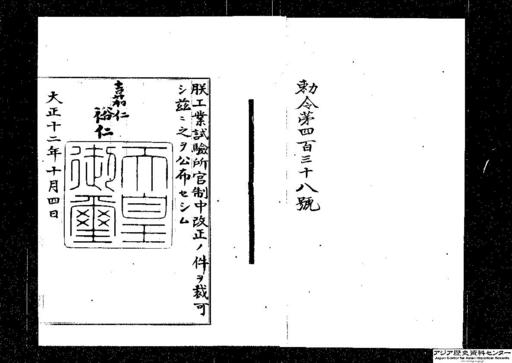 勅令第四百三十八號
朕工業試驗所官制中改正ノ件ヲ裁可
シ玆ニ之ヲ公布セシム
嘉仁
裕仁
天皇
御璽
大正十二年十月四日
アジア歴史資料センター
Japan Center for Asian Historical Records